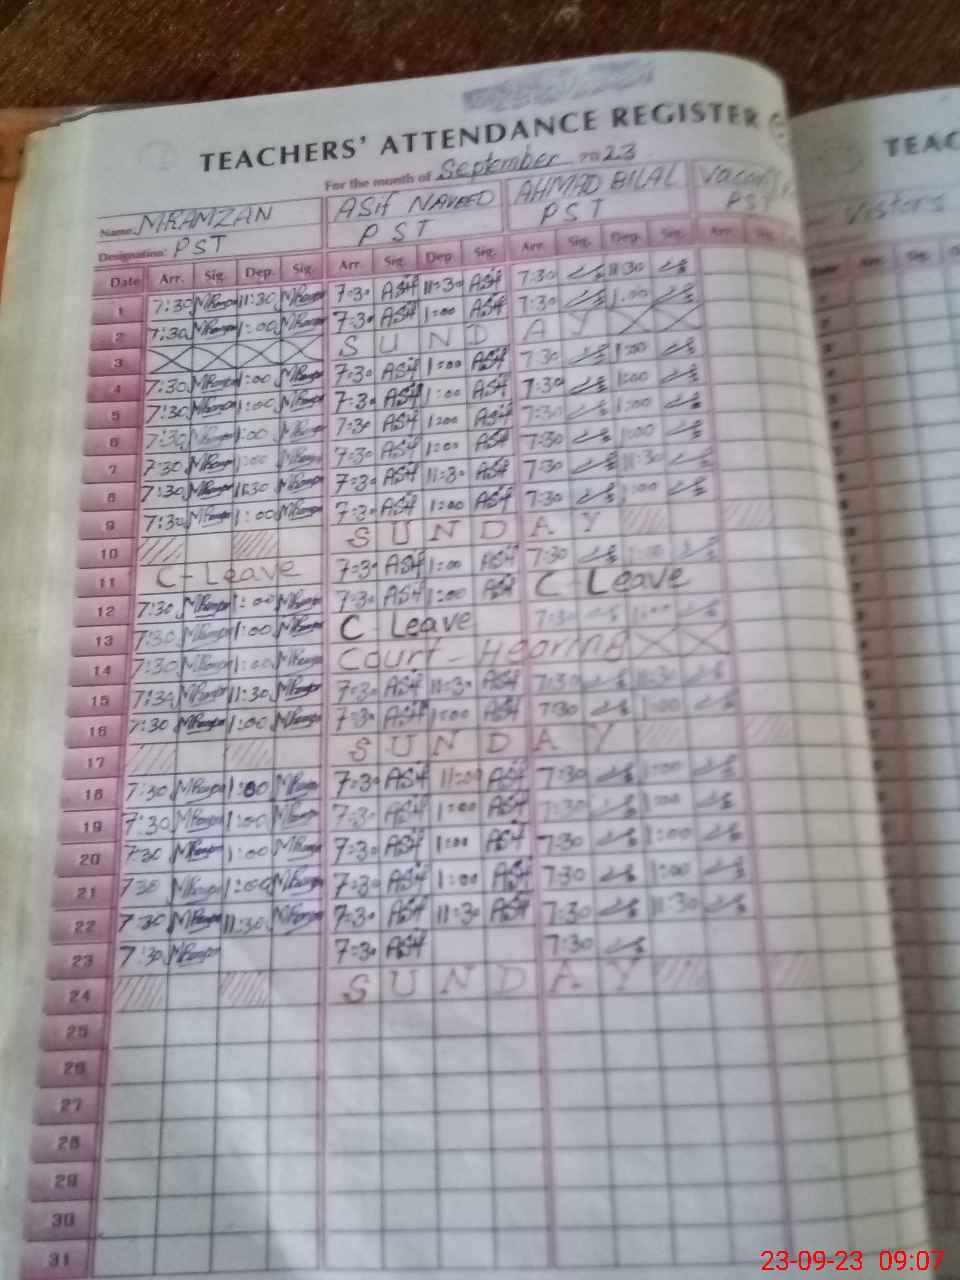 TEACHERS' ATTENDANCE REGISTER
TEAC
For the month of September 2023
Name: MRAMZAN ASif NAVEED AHMAD BILAL
Visitors
Designation: PST PST PST PST
Date Arr. Sig. Dep. Sig. Arr. Sig. Dep. Sig. Arr. Sig. Dep. Sig. Arr. Sig.
1 7:30 MRamzan 11:30 MRamzan 7:30 ASif 11:30 ASif 7:30 11:30
2 7:30 MRamzan 1:00 MRamzan 7:30 ASif 1:00 ASif 7:30 1:00
3 SUNDAY
4 7:30 MRamzan 1:00 MRamzan 7:30 ASif 1:00 ASif 7:30 1:00
5 7:30 MRamzan 1:00 MRamzan 7:30 ASif 1:00 ASif 7:30 1:00
6 7:30 MRamzan 1:00 MRamzan 7:30 ASif 1:00 ASif 7:30 1:00
7 7:30 MRamzan 1:00 MRamzan 7:30 ASif 1:00 ASif 7:30 1:00
8 7:30 MRamzan 11:30 MRamzan 7:30 ASif 11:30 ASif 7:30 11:30
9 7:30 MRamzan 1:00 MRamzan 7:30 ASif 1:00 ASif 7:30 1:00
10 SUNDAY
11 C-Leave 7:30 ASif 1:00 ASif 7:30 1:00
12 7:30 MRamzan 1:00 MRamzan 7:30 ASif 1:00 ASif C-Leave
13 7:30 MRamzan 1:00 MRamzan C Leave 7:30 1:00
14 7:30 MRamzan 1:00 MRamzan Court-Hearing
15 7:30 MRamzan 11:30 MRamzan 7:30 ASif 11:30 ASif 7:30 11:30
16 7:30 MRamzan 1:00 MRamzan 7:30 ASif 1:00 ASif 7:30 1:00
17 SUNDAY
18 7:30 MRamzan 1:00 MRamzan 7:30 ASif 11:00 ASif 7:30 1:00
19 7:30 MRamzan 1:00 MRamzan 7:30 ASif 1:00 ASif 7:30 1:00
20 7:30 MRamzan 1:00 MRamzan 7:30 ASif 1:00 ASif 7:30 1:00
21 7:30 MRamzan 1:00 MRamzan 7:30 ASif 1:00 ASif 7:30 1:00
22 7:30 MRamzan 11:30 MRamzan 7:30 ASif 11:30 ASif 7:30 11:30
23 7:30 MRamzan 7:30 ASif 7:30
24 SUNDAY
25
26
27
28
29
30
31
23-09-23 09:07